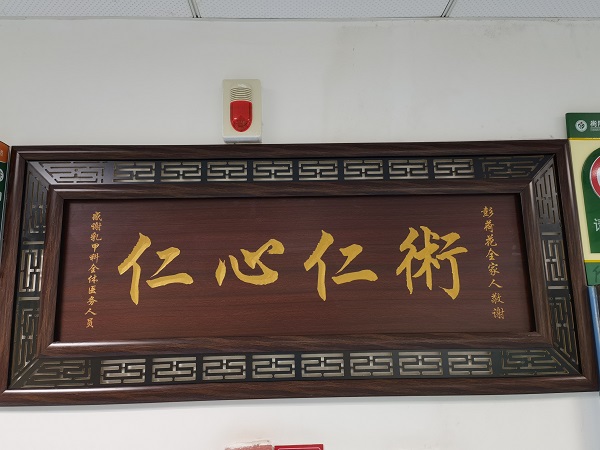 感谢乳甲科全体医务人员
仁心仁術
彭荷花全家人敬谢